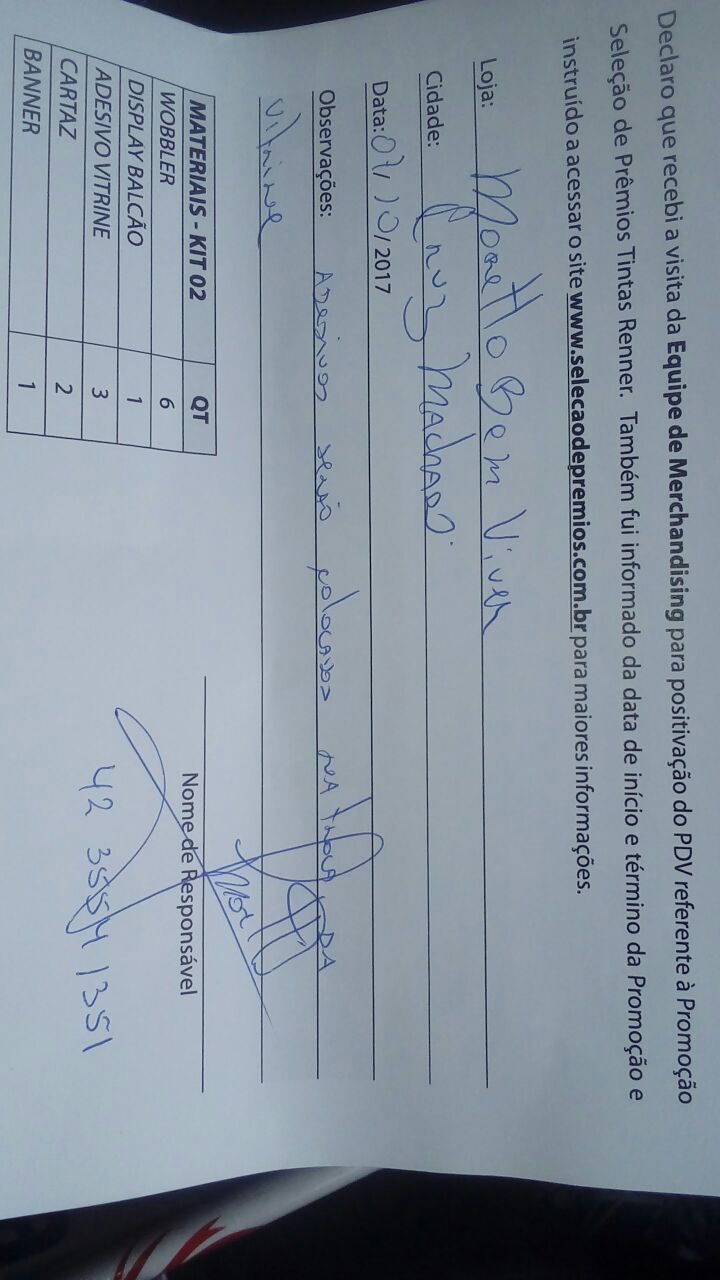 Declaro que recebi a visita da Equipe de Merchandising para positivação do PDV referente à Promoção
Seleção de Prêmios Tintas Renner. Também fui informado da data de início e término da Promoção e
instruído a acessar o site www.selecaodepremios.com.br para maiores informações.
Loja: Moretto Bem Viver
Cidade: Cruz Machado.
Data: /10/2017
Observações: Adesivos serão colocados na troca da
vitrine
Nome de Responsável
42 3554 1351
MATERIAIS - KIT 02 QT
WOBBLER 6
DISPLAY BALCÃO 1
ADESIVO VITRINE 3
CARTAZ 2
BANNER 1